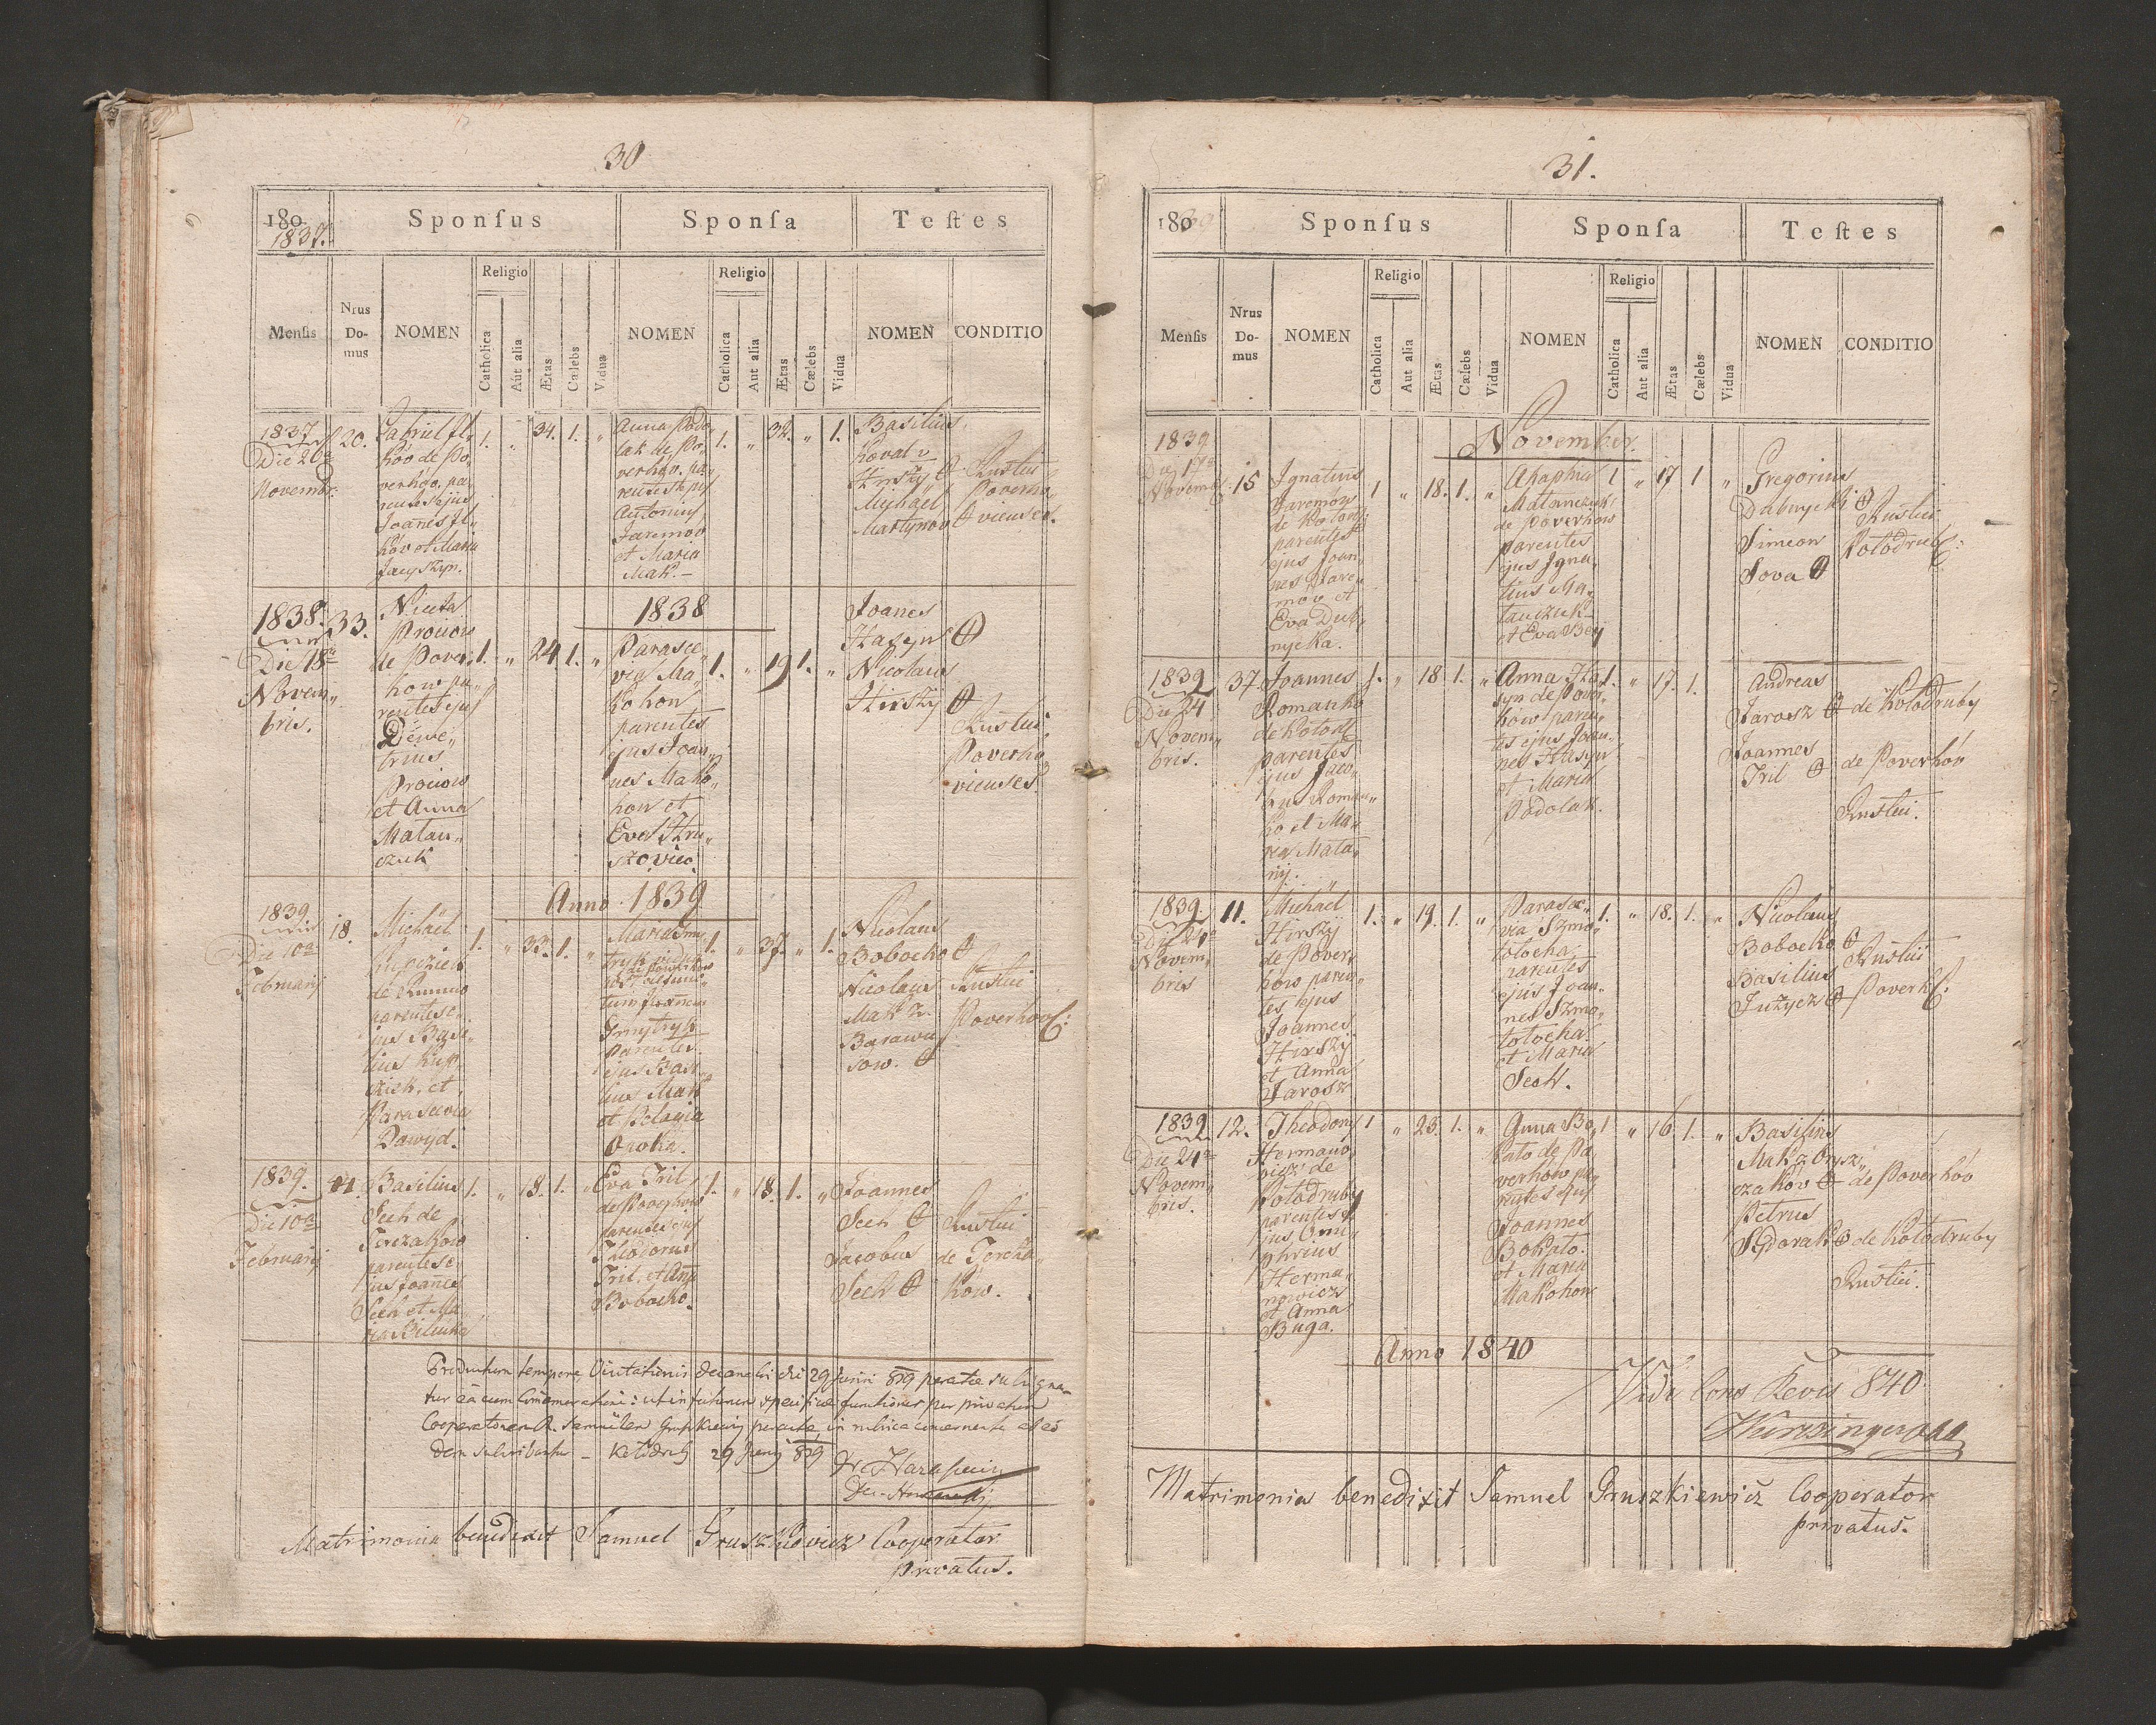 30
180
1837.
Sponſus
Sponſa
Teſtes
Menſis
Nrus
Do-
mus
NOMEN
Religio
Catholica
Aut alia
Ætas
Cælebs
Vidua
NOMEN
Religio
Catholica
Aut alia
Ætas
Cælebs
Vidua
NOMEN
CONDITIO
1837
Die 26a
Novembr.
20.
Gabriel Jl„
ków de Po„
verhów. pa„
rentes ejus
Joañes Jl„
ków et Maria
Jacyszyn.
1. „ 34. 1. „
Anna Podo„
lak de Po„
verhów. pa„
rentes ejus
Antonius
Jaremov
et Maria
Mak.
1. „ 32. „ 1.
Basilius
Koval v
Hirskÿ
Michaël
Martynov
Rustici
Poverho„
vienses.
1838.
Die 18a
Novem„
bris.
33.
Nicita
Proiow
de Pover„
how pa„
rentes ejus
Deme„
trius
Proiow
et Anna
Matan„
czuk
1. „ 24 1. „
1838
Parasce„
via Ma„
kohon
parentes
ejus Joan„
nes Mako„
hon et
Eva Hru„
szoviec.
1. „ 19 1. „
Joanes
Hasyn
Nicolaus
Hirskÿ
Rustici
Poverho„
vienses.
Anno 1839
1839
Die 10a
Februarij
18.
Michaël
Kupczick
de Rumno
parentes e„
jus Basi„
lius Kup„
czick. et
Parascevia
Dawÿd.
1. „ 33. 1. „
Maria Dmy„
tryk vidua
de Powerhow
post defunc„
tum Joannem
Dmytryk
parentes
ejus Basi„
lius Mak
et Pelagia
Onoka.
1. „ 37. „ 1.
Nicolaus
Bobecko
Nicolaus
Mak v.
Barawu
sow.
Rustici
Poverhov
1839.
Die 10a
Februarij
Basilius
Sech de
Torczakow
parentes e„
jus Joannes
Sech et Ma„
ria Bilinka
1. „ 18. 1. „
Eva Tril
de Powerhow
parentes ejus
Theodorus
Tril. et Anna
Bobecko.
1. „ 18. 1. „
Joannes
Sech
Jacobus
Sech
Rustici
de Torcza„
kow.
Productum tempore Visitationis decanalis die 29 Junii 839
Cooperatorem
Kołodrub 29 Junij 839
Matrimonia benedixit Samuel Gruszkiewicz Cooperator
privatus.
31.
180
Sponſus
Sponſa
Teſtes
Menſis
Nrus
Do-
mus
NOMEN
Religio
Catholica
Aut alia
Ætas
Cælebs
Vidua
NOMEN
Religio
Catholica
Aut alia
Ætas
Cælebs
Vidua
NOMEN
CONDITIO
November.
1839
Die 17a
Novemb.
15
Ignatius
Jaremow
de Kołod„
parentes
ejus Joan„
nes Jare„
mow et
Eva Dub„
nycka.
1 „ 18. 1. „
Ahaphia
Matanczuk
de Poverhow
parentes
ejus Igna„
tius Ma„
tanczuk
et Eva Bej
1 „ 17 1 „
Gregorius
Dubnycki
Simeon
Sova
Rustici
Kołodrub:
1839
Die 24
Novem„
bris.
37.
Joannes
Romanko
de Kołod
parentes
ejus Jaco„
bus Roman„
ko et Ma„
ria Mata„
nij.
1. „ 18. 1. „
Anna Ha„
syn de Pover„
how paren„
tes ejus Joan„
nes Hasyn
et Maria
Podolak.
1. „ 17. 1.
Andreas
Jarosz de Kołodruby
Joannes
Tril de Poverhóv
Rustici.
1839
Die 24a
Novem„
bris
11.
Michaël
Hirskÿ
de Pover„
hów paren„
tes ejus
Joannes
Hirskij
et Anna
Jarosz
1. „ 19. 1. „
Parasce„
via Szmo„
tołocha
parentes
ejus Joan„
nes Szmo„
tołocha.
et Maria
Sech.
1. „ 18. 1. „
Nicolaus
Bobecko
Basilius
Jużycz
Rustici
Poverh:
1839
Die 24a
Novem„
bris.
12.
Theodorus
Hermano„
wicz de
Kołodruby
parentes e„
jus Onu„
phrius
Herma„
nowicz
et Anna
Buga.
1 „ 23. 1. „
Anna Bo„
kało de Po„
verhów pa„
rentes ejus
Joannes
Bokało.
et Maria
Makohon
1 „ 16. 1. „
Basilius
Mak a Onysz„
czaków de Poverhóv
Petrus
Sydorak de Kołodruby
Rustici.
Anno 1840
Vidi Cons Revis 840
Matrimonia benedixit Samuel Gruszkiewicz Cooperator
privatus.